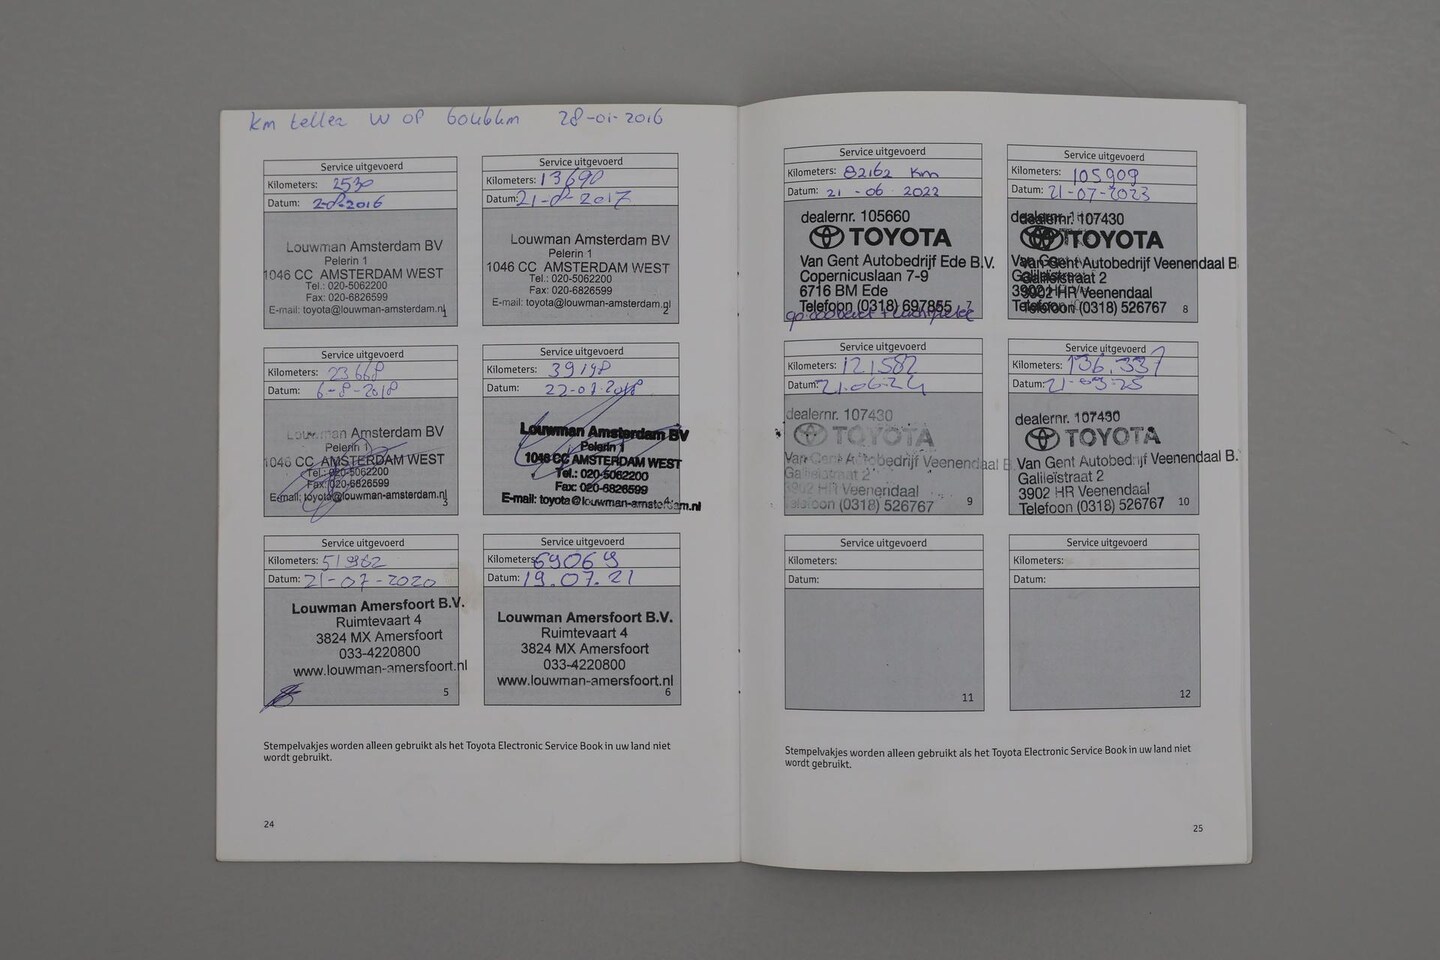 km teller w op 60466km 28-01-2016
Service uitgevoerd
Kilometers: 2530
Datum: 2-8-2016
Louwman Amsterdam BV
Pelerin 1
1046 CC AMSTERDAM WEST
Tel.: 020-5062200
Fax: 020-6826599
E-mail: toyota@louwman-amsterdam.nl
1
Service uitgevoerd
Kilometers: 13690
Datum: 21-8-2017
Louwman Amsterdam BV
Pelerin 1
1046 CC AMSTERDAM WEST
Tel.: 020-5062200
Fax: 020-6826599
E-mail: toyota@louwman-amsterdam.nl
2
Service uitgevoerd
Kilometers: 23668
Datum: 6-8-2018
Louwman Amsterdam BV
Pelerin 1
1046 CC AMSTERDAM WEST
Tel.: 020-5062200
Fax: 020-6826599
E-mail: toyota@louwman-amsterdam.nl
3
Service uitgevoerd
Kilometers: 39198
Datum: 22-07-2018
Louwman Amsterdam BV
Pelerin 1
1046 CC AMSTERDAM WEST
Tel.: 020-5062200
Fax: 020-6826599
E-mail: toyota@louwman-amsterdam.nl
4
Service uitgevoerd
Kilometers: 51982
Datum: 21-07-2020
Louwman Amersfoort B.V.
Ruimtevaart 4
3824 MX Amersfoort
033-4220800
www.louwman-amersfoort.nl
5
Service uitgevoerd
Kilometers: 69069
Datum: 19.07.21
Louwman Amersfoort B.V.
Ruimtevaart 4
3824 MX Amersfoort
033-4220800
www.louwman-amersfoort.nl
6
Stempelvakjes worden alleen gebruikt als het Toyota Electronic Service Book in uw land niet
wordt gebruikt.
24
Service uitgevoerd
Kilometers: 82162 km
Datum: 21-06 2022
dealernr. 105660
TOYOTA
Van Gent Autobedrijf Ede B.V.
Copernicuslaan 7-9
6716 BM Ede
Telefoon (0318) 697855
7
Service uitgevoerd
Kilometers: 105909
Datum: 21-07-2023
dealernr. 107430
TOYOTA
Van Gent Autobedrijf Veenendaal B
Galileïstraat 2
3902 HR Veenendaal
Telefoon (0318) 526767
8
Service uitgevoerd
Kilometers: 121582
Datum: 21.06.24
dealernr. 107430
TOYOTA
Van Gent Autobedrijf Veenendaal B
Galileïstraat 2
3902 HR Veenendaal
Telefoon (0318) 526767
9
Service uitgevoerd
Kilometers: 136.337
Datum: 21-03-25
dealernr. 107430
TOYOTA
Van Gent Autobedrijf Veenendaal B.
Galileïstraat 2
3902 HR Veenendaal
Telefoon (0318) 526767
10
Service uitgevoerd
Kilometers:
Datum:
11
Service uitgevoerd
Kilometers:
Datum:
12
Stempelvakjes worden alleen gebruikt als het Toyota Electronic Service Book in uw land niet
wordt gebruikt.
25